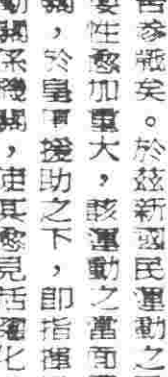 參戰矣。於茲新國民運動之
要性愈加重大，該運動之當面
關，於皇軍援助之下，即指揮
動關係機關，使其愈見活潑化